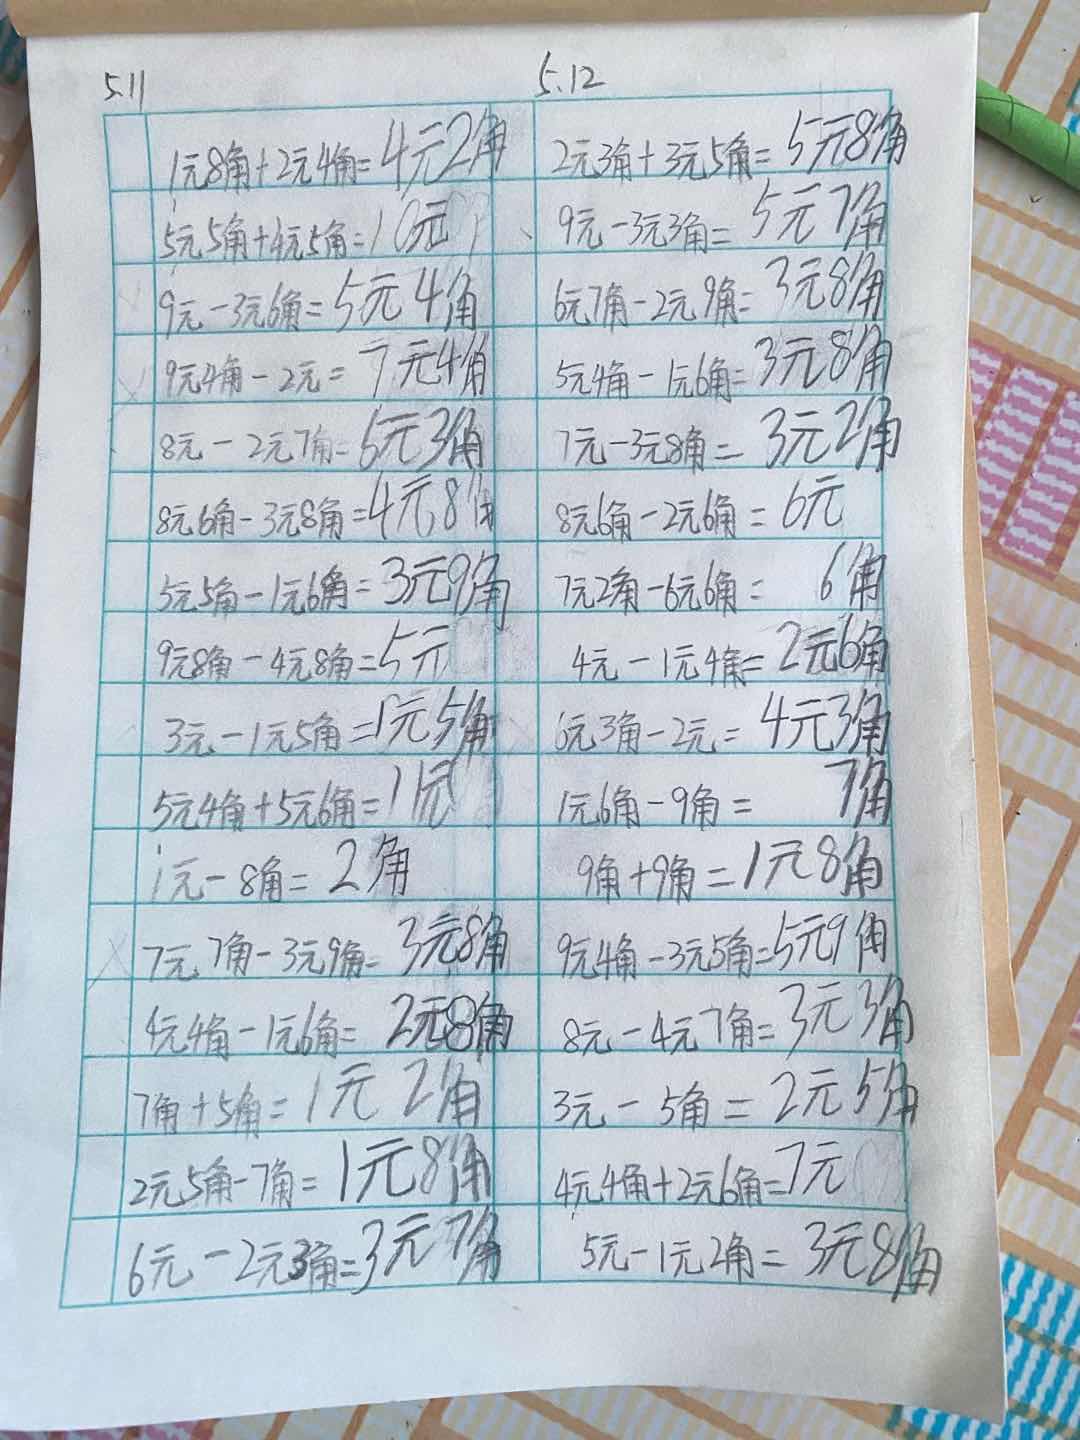 5.11
1元8角+2元4角=4元2角
5元5角+4元5角=10元
9元-3元6角=5元4角
9元4角-2元=7元4角
8元-2元7角=5元3角
8元6角-3元8角=4元8角
5元5角-1元6角=3元9角
9元8角-4元8角=5元
3元-1元5角=1元5角
5元4角+5元6角=11元
1元-8角=2角
7元7角-3元9角=3元8角
4元4角-1元6角=2元8角
7角+5角=1元2角
2元5角-7角=1元8角
6元-2元3角=3元7角
5.12
2元3角+3元5角=5元8角
9元-3元3角=5元7角
6元7角-2元9角=3元8角
5元4角-1元6角=3元8角
7元-3元8角=3元2角
8元6角-2元6角=6元
7元2角-6元6角=6角
4元-1元4角=2元6角
6元3角-2元=4元3角
1元6角-9角=7角
9角+9角=1元8角
9元4角-3元5角=5元9角
8元-4元7角=3元3角
3元-5角=2元5角
4元4角+2元6角=7元
5元-1元2角=3元8角